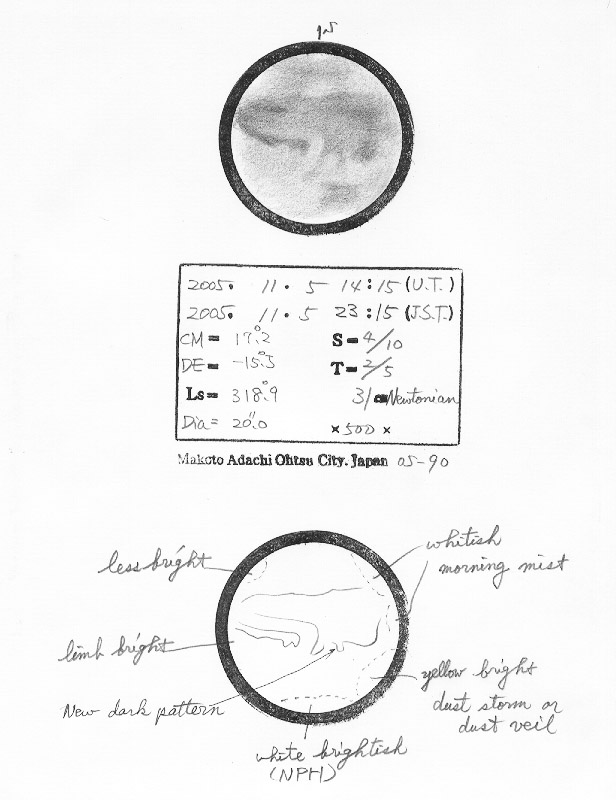 2005. 11. 5 14:15 (U.T.)
2005. 11. 5 23:15 (J.S.T.)
CM= 17.°2 S=4/10
DE= -15.°5 T=2/5
Ls= 318.°9 31 Newtonian
Dia= 20."0 ×500×
Makoto Adachi Ohtsu City. Japan 05-90
less bright
whitish
morning mist
limb bright
yellow bright
dust storm or
dust veil
New dark pattern
white brightish
(NPH)